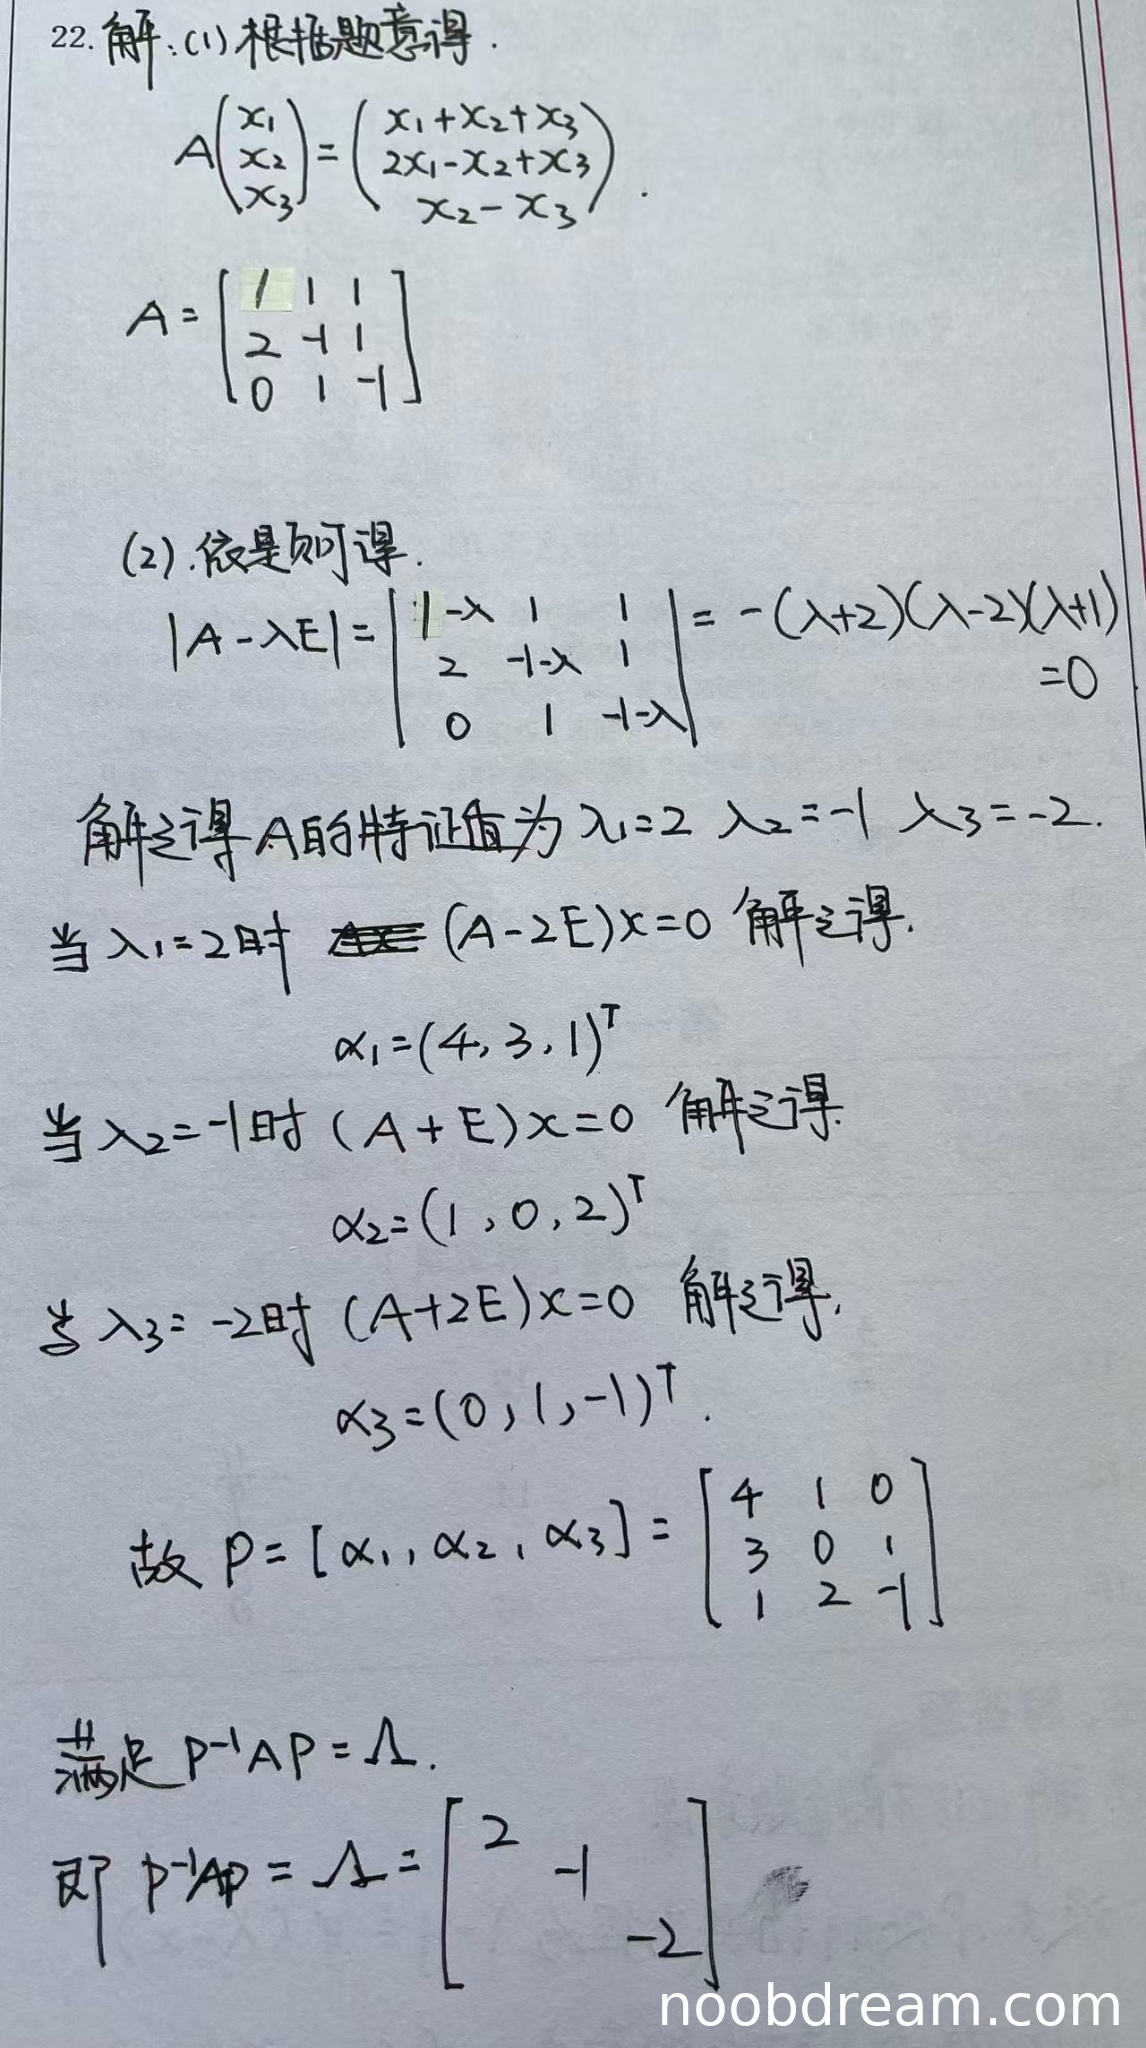 22. 解:(1)根据题意得.
A(x₁ x₂ x₃) = (x₁+x₂+x₃
2x₁-x₂+x₃
x₂-x₃).
A = [1 1 1
2 -1 1
0 1 -1]
(2).依题可得.
|A-λE| = |1-λ 1 1| = -(λ+2)(λ-2)(λ+1)
2 -1-λ 1 =0
0 1 -1-λ
解之得A的特证值为 λ₁=2 λ₂=-1 λ₃=-2.
当λ₁=2时 (A-2E)x=0 解之得.
α₁=(4,3,1)ᵀ
当λ₂=-1时 (A+E)x=0 解之得.
α₂=(1,0,2)ᵀ
当λ₃=-2时 (A+2E)x=0 解之得.
α₃=(0,1,-1)ᵀ.
故 P=[α₁,α₂,α₃] = [4 1 0
3 0 1
1 2 -1]
满足 P⁻¹AP=Λ.
即 P⁻¹AP = Λ = [2
-1
-2]
noobdream.com